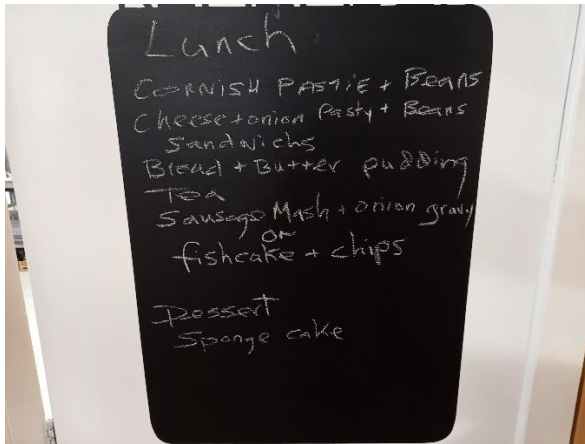 Lunch
CORNISH PASTIE + Beans
Cheese + onion Pasty + Beans
Sandwichs
Bread + Butter pudding
Tea
Sausage Mash + onion gravy
or
fishcake + chips
Dessert
Sponge cake